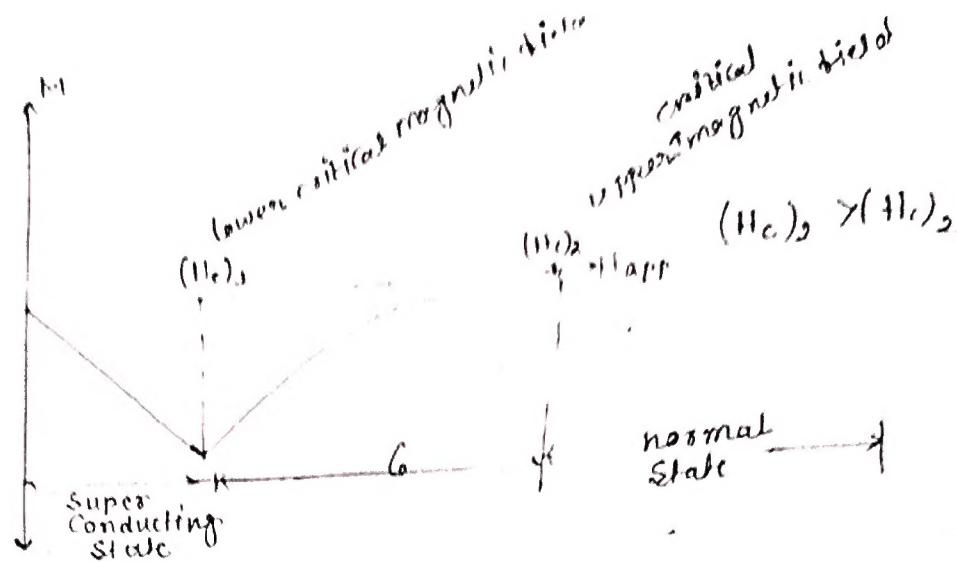 M
lower critical magnetic field
critical
upper magnetic field
(Hc)1
(Hc)2
Happ
(Hc)2 >(Hc)2
normal
State
Super
Conducting
State